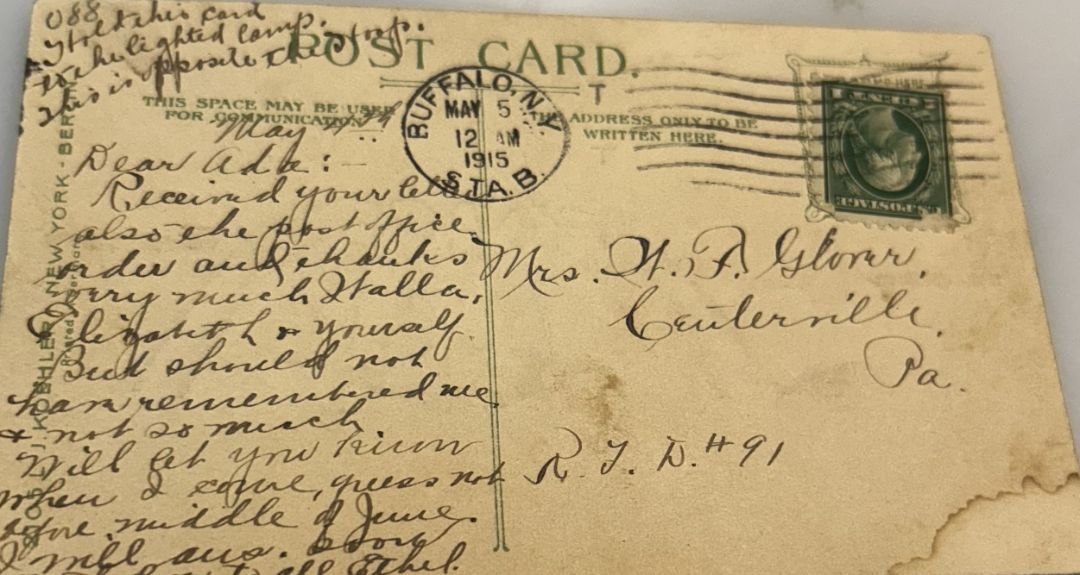 088
Hold this card
to the lighted lamp.
This is opposite the
POST CARD.
THIS SPACE MAY BE USED
FOR COMMUNICATION
THE ADDRESS ONLY TO BE
WRITTEN HERE.
BUFFALO, N.Y.
MAY 5
12 AM
1915
STA. B.
U.S. POSTAGE
May
Dear Ada:—
Received your
also the post office
order and thanks
very much Stalla,
Elizabeth & yourself
But should not
have remembered me
& not so much
Will let you know
when I come, guess not
before middle of June.
I will ans. soon
all Ethel.
Mrs. H. F. Glover,
Centerville,
Pa.
R. F. D. #91
KOEHLER, NEW YORK - BERLIN